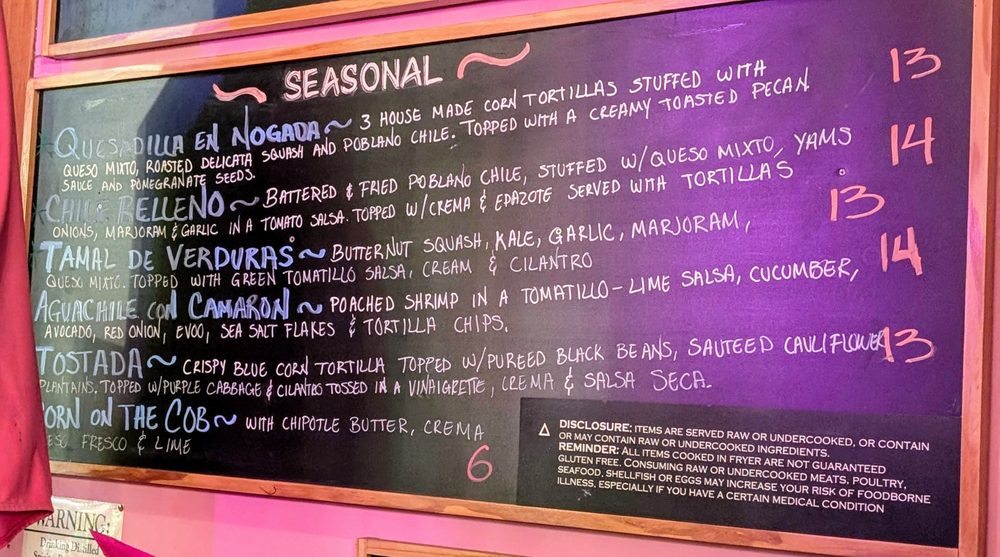 SEASONAL
QUESADILLA EN NOGADA ~ 3 HOUSE MADE CORN TORTILLAS STUFFED WITH 13
QUESO MIXTO, ROASTED DELICATA SQUASH AND POBLANO CHILE. TOPPED WITH A CREAMY TOASTED PECAN
SAUCE AND POMEGRANATE SEEDS.
CHILE RELLENO ~ BATTERED & FRIED POBLANO CHILE, STUFFED W/QUESO MIXTO, YAMS 14
ONIONS, MARJORAM & GARLIC IN A TOMATO SALSA. TOPPED W/CREMA & EPAZOTE SERVED WITH TORTILLAS
TAMAL DE VERDURAS ~ BUTTERNUT SQUASH, KALE, GARLIC, MARJORAM, 13
QUESO MIXTO. TOPPED WITH GREEN TOMATILLO SALSA, CREAM & CILANTRO
AGUACHILE CON CAMARON ~ POACHED SHRIMP IN A TOMATILLO-LIME SALSA, CUCUMBER, 14
AVOCADO, RED ONION, EVOO, SEA SALT FLAKES & TORTILLA CHIPS.
TOSTADA ~ CRISPY BLUE CORN TORTILLA TOPPED W/PUREED BLACK BEANS, SAUTEED CAULIFLOWER 13
PLANTAINS. TOPPED W/PURPLE CABBAGE & CILANTRO TOSSED IN A VINAIGRETTE, CREMA & SALSA SECA.
ORN ON THE COB ~ WITH CHIPOTLE BUTTER, CREMA
ESO FRESCO & LIME 6
DISCLOSURE: ITEMS ARE SERVED RAW OR UNDERCOOKED, OR CONTAIN
OR MAY CONTAIN RAW OR UNDERCOOKED INGREDIENTS.
REMINDER: ALL ITEMS COOKED IN FRYER ARE NOT GUARANTEED
GLUTEN FREE. CONSUMING RAW OR UNDERCOOKED MEATS, POULTRY,
SEAFOOD, SHELLFISH OR EGGS MAY INCREASE YOUR RISK OF FOODBORNE
ILLNESS, ESPECIALLY IF YOU HAVE A CERTAIN MEDICAL CONDITION
WARNING:
Drinking Distilled